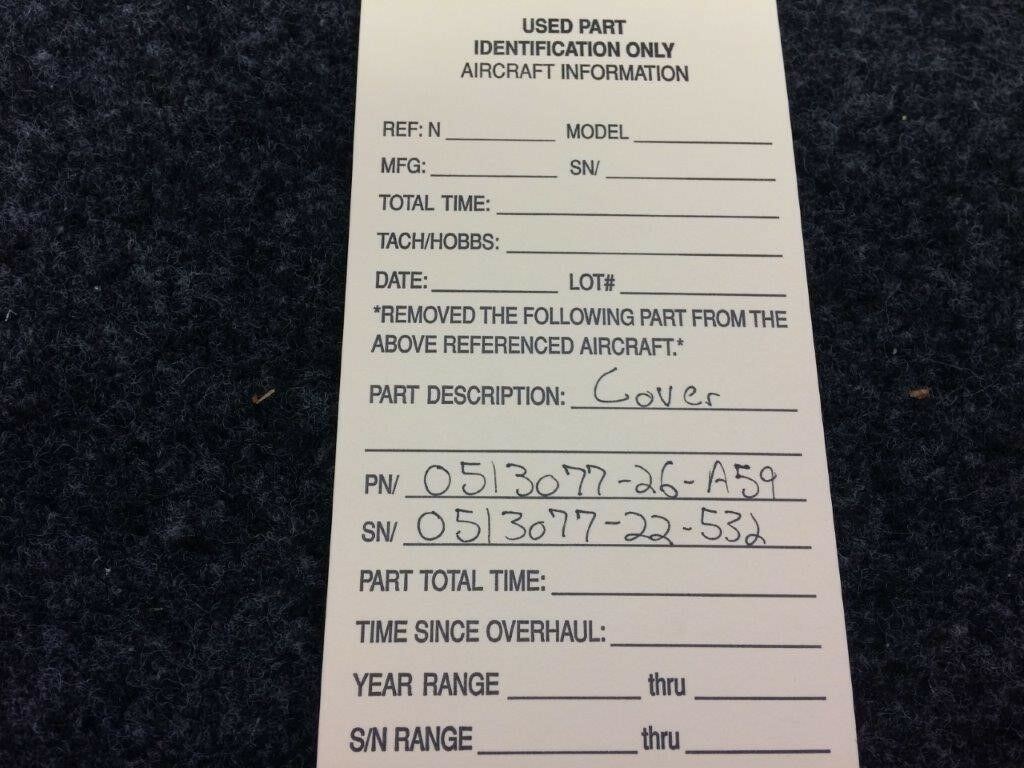 USED PART
IDENTIFICATION ONLY
AIRCRAFT INFORMATION
REF: N ________ MODEL ________
MFG: ________ SN/ ________
TOTAL TIME: ________
TACH/HOBBS: ________
DATE: ________ LOT# ________
*REMOVED THE FOLLOWING PART FROM THE
ABOVE REFERENCED AIRCRAFT.*
PART DESCRIPTION: Cover
PN/ 0513077-26-A59
SN/ 0513077-22-532
PART TOTAL TIME: ________
TIME SINCE OVERHAUL: ________
YEAR RANGE ________ thru ________
S/N RANGE ________ thru ________